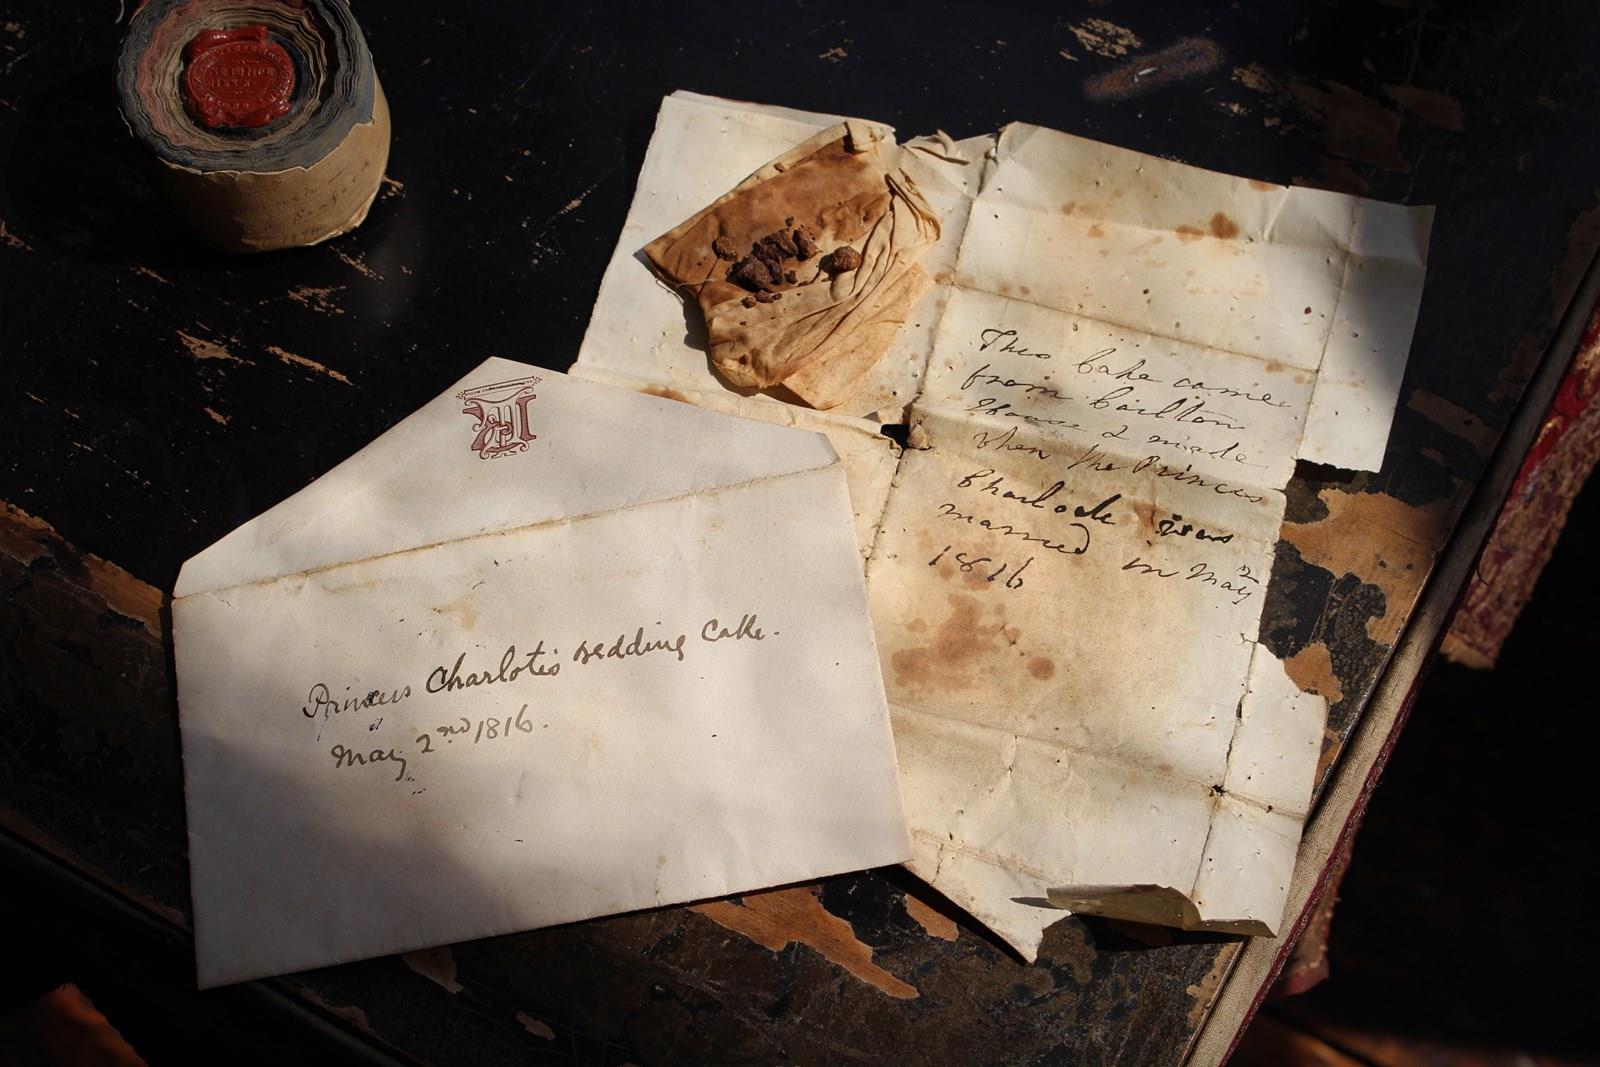 Princess Charlote's wedding Cake.
May 2nd 1816.
This Cake came
from Carlton
House & made
when the Princess
Charlotte was
married in May 2
1816